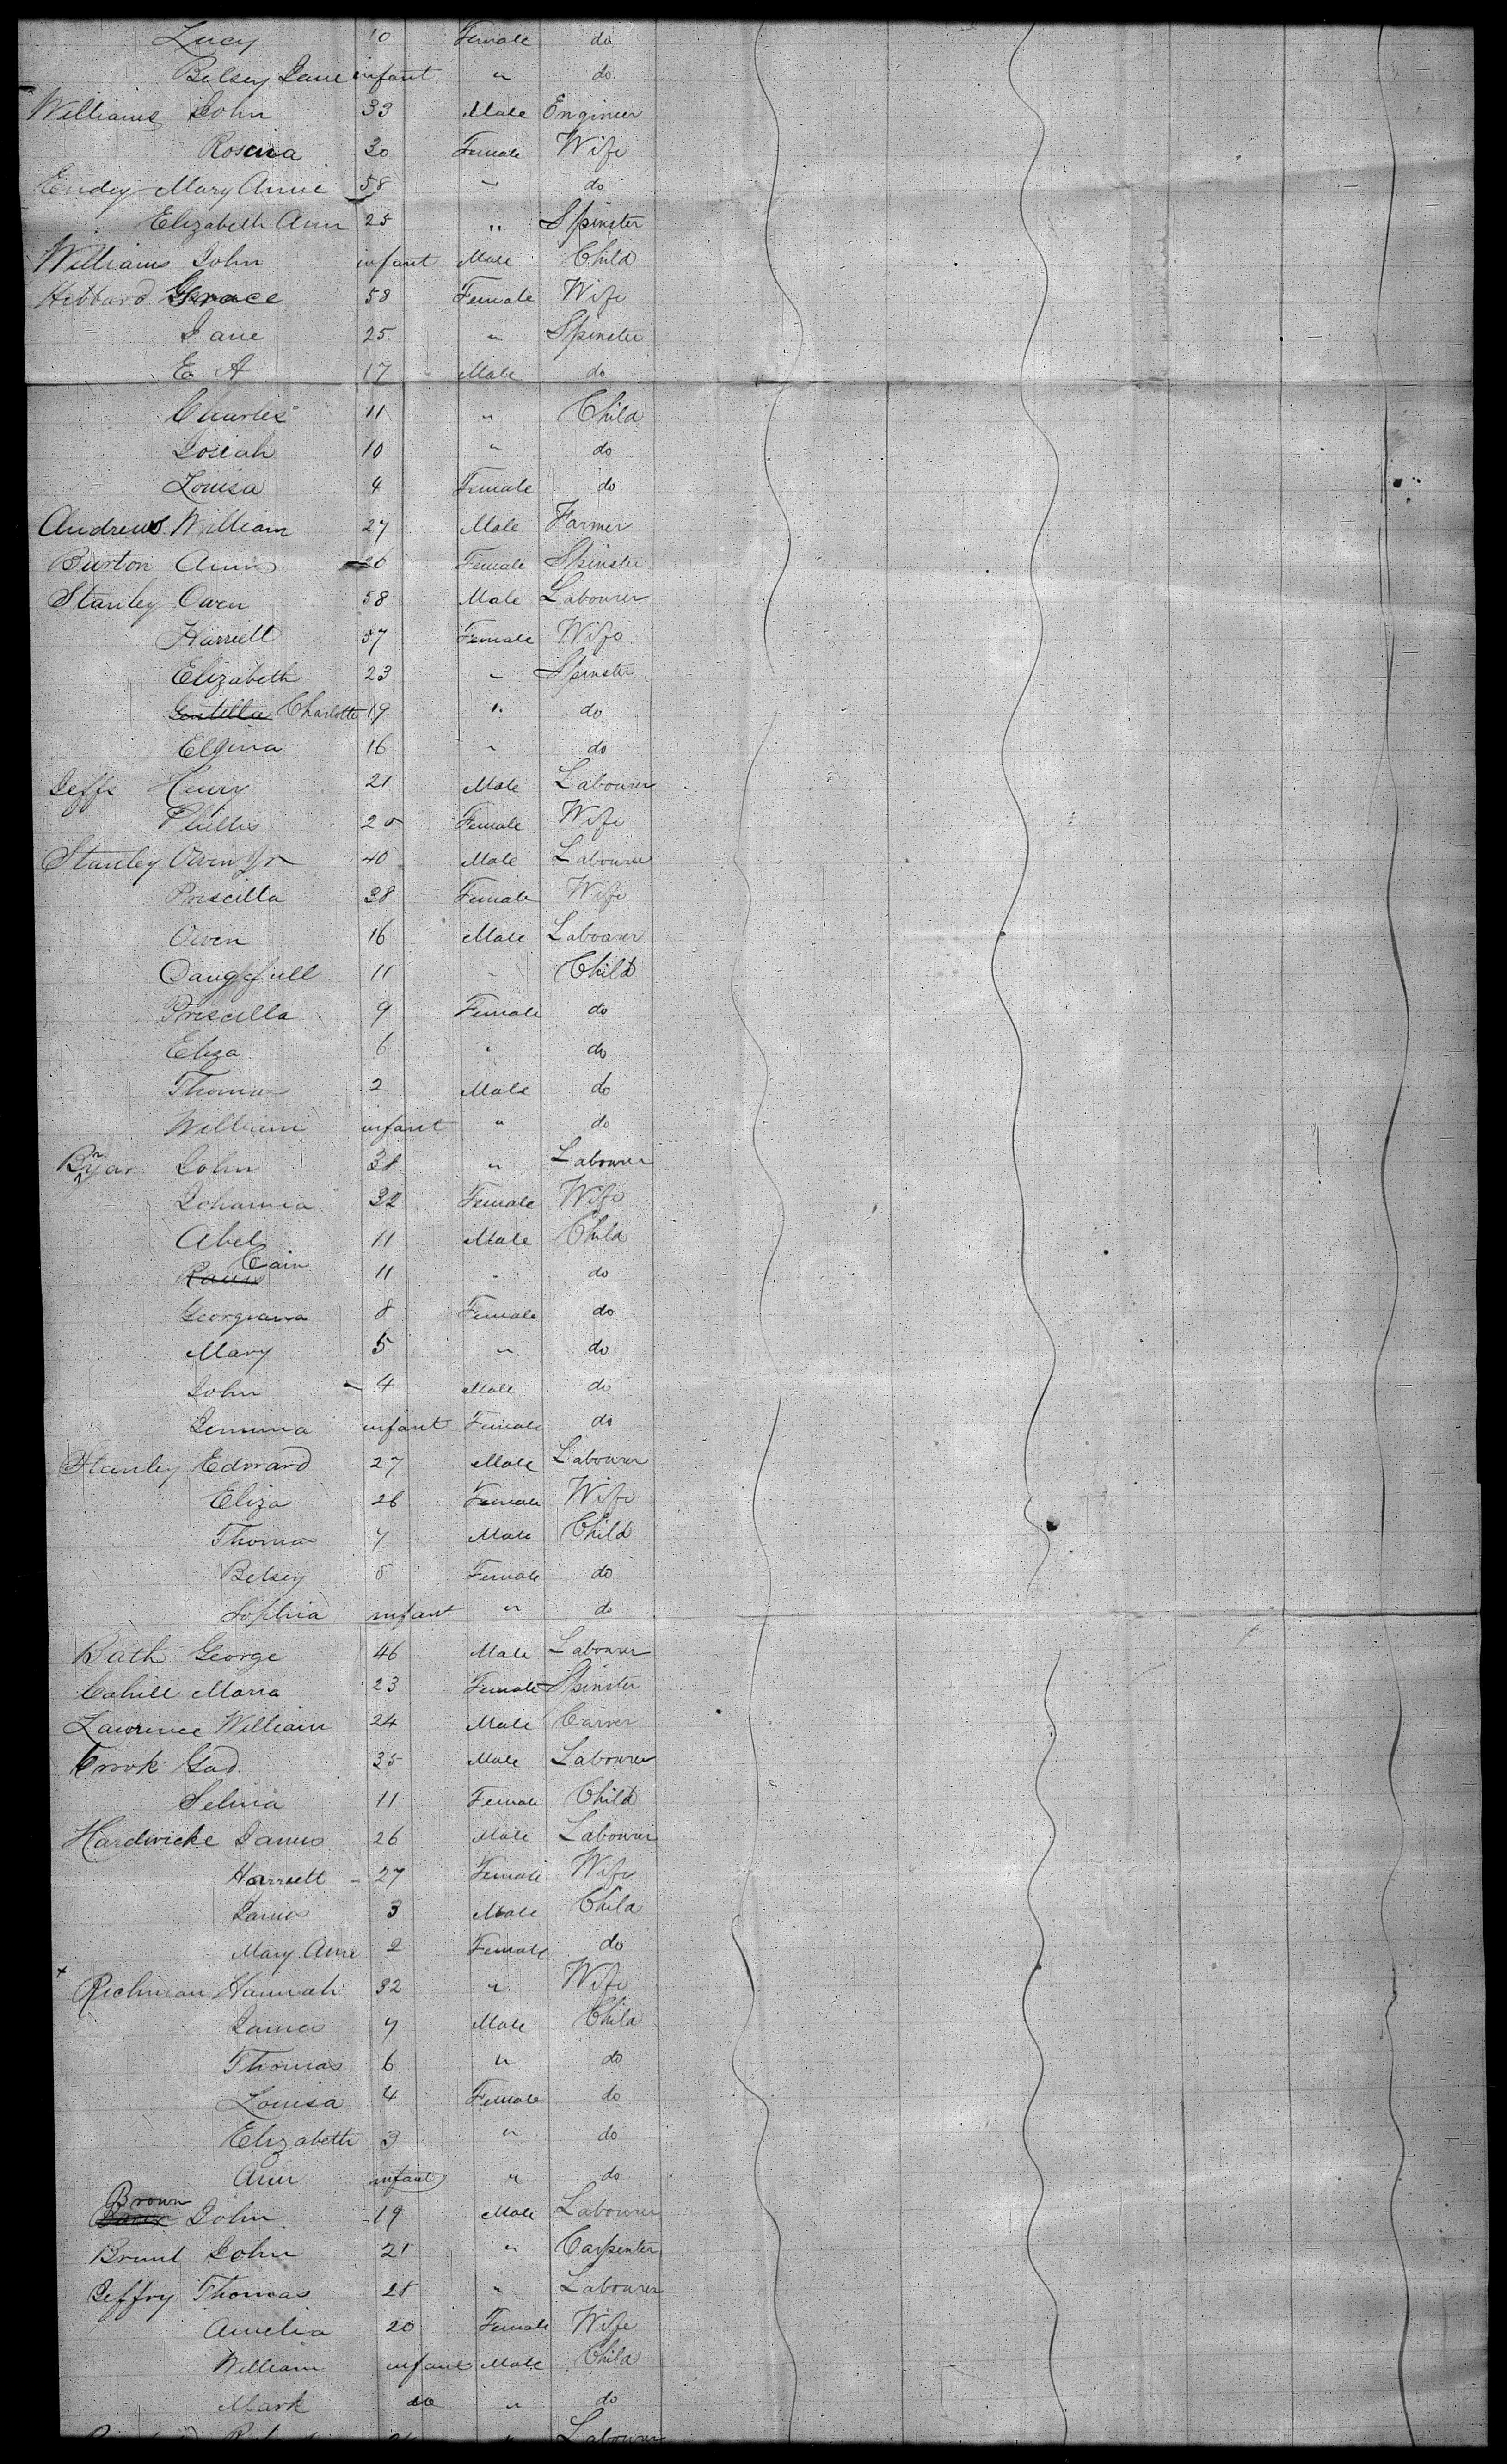 Lucy 10 Female do
Betsey Jane infant " do
Williams John 33 Male Engineer
Rosena 30 Female Wife
Endey Mary Anne 58 " do
Elizabeth Ann 25 " Spinster
Williams John infant Male Child
Hibbard Grace 58 Female Wife
Jane 25 " Spinster
E A 17 Male do
Charles 11 " Child
Josiah 10 " do
Louisa 4 Female do
Andrews William 27 Male Farmer
Burton Annie 26 Female Spinster
Stanley Owen 58 Male Labourer
Harriett 57 Female Wife
Elizabeth 23 " Spinster
Charlotte 19 " do
Elgina 16 " do
Jeffs Henry 21 Male Labourer
Phillis 20 Female Wife
Stanley Owen Jr 40 Male Labourer
Priscilla 38 Female Wife
Owen 16 Male Labourer
11 " Child
Priscilla 9 Female do
Eliza 6 " do
Thomas 2 Male do
William infant " do
John 38 " Labourer
Johanna 32 Female Wife
Abel 11 Male Child
Cain 11 " do
Georgiana 8 Female do
Mary 5 " do
John 4 Male do
Jemima infant Female do
Stanley Edward 27 Male Labourer
Eliza 26 Female Wife
Thomas 7 Male Child
Betsey 5 Female do
Sophia infant " do
Bath George 46 Male Labourer
Cahill Maria 23 Female Spinster
Lawrence William 24 Male Carver
Crook Gad 35 Male Labourer
Selina 11 Female Child
Hardwicke James 26 Male Labourer
Harriett 27 Female Wife
James 3 Male Child
Mary Ann 2 Female do
x Richman Hannah 32 " Wife
James 7 Male Child
Thomas 6 " do
Louisa 4 Female do
Elizabeth 3 " do
Ann infant " do
Brown
John 19 Male Labourer
Brunt John 21 " Carpenter
Jeffry Thomas 28 " Labourer
Amelia 20 Female Wife
William infant Male Child
Mark do " do
Labourer